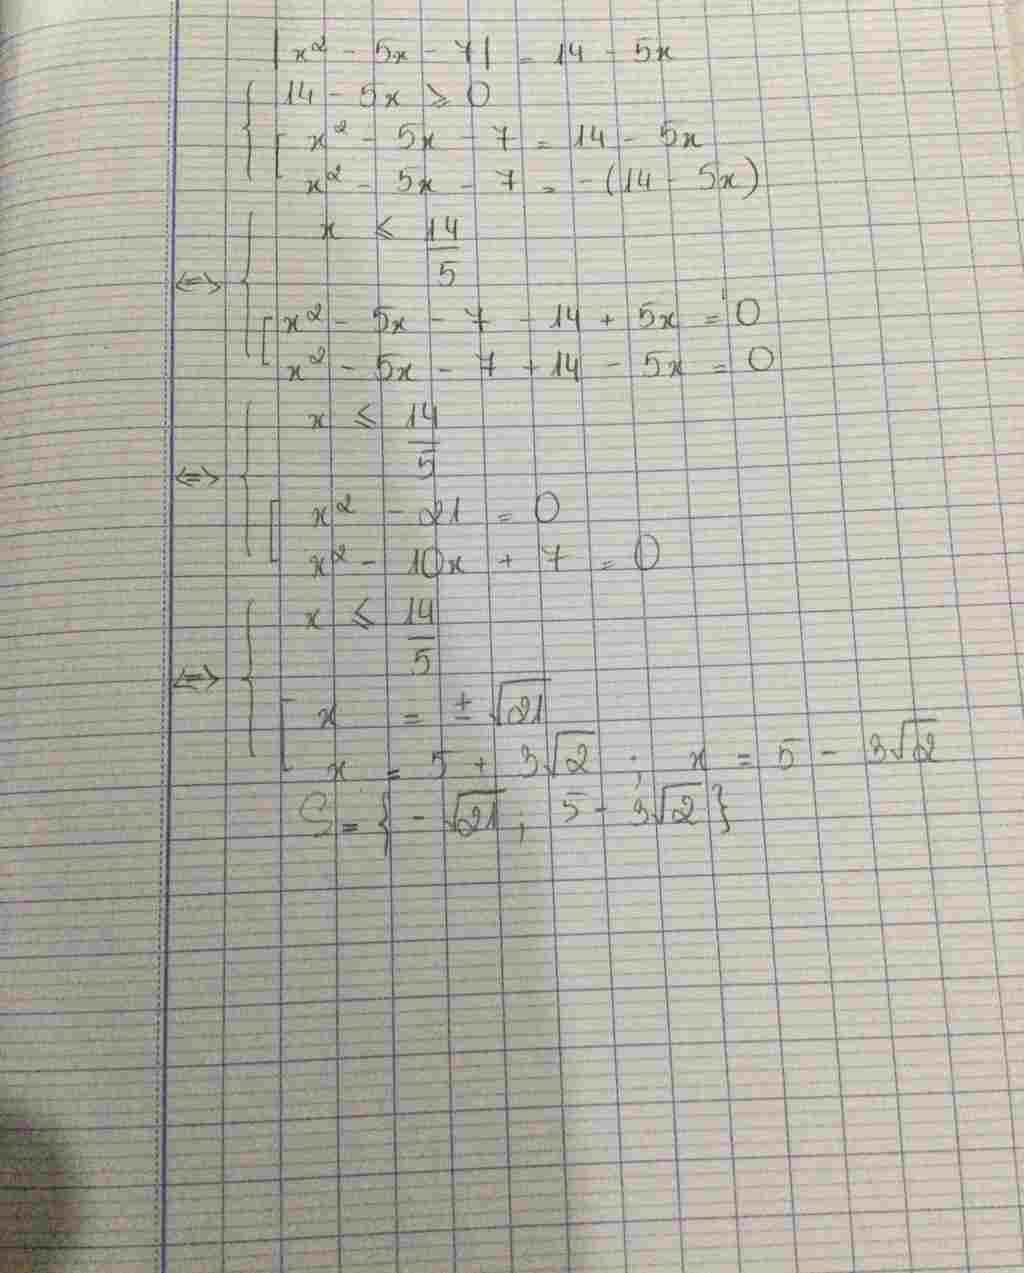 |x² - 5x - 7| = 14 - 5x
{ 14 - 5x ≥ 0
[ x² - 5x - 7 = 14 - 5x
x² - 5x - 7 = -(14 - 5x)
⇔ { x ≤ 14/5
[ x² - 5x - 7 - 14 + 5x = 0
x² - 5x - 7 + 14 - 5x = 0
⇔ { x ≤ 14/5
[ x² - 21 = 0
x² - 10x + 7 = 0
⇔ { x ≤ 14/5
[ x = ± √21
x = 5 + 3√2 ; x = 5 - 3√2
S = { - √21 ; 5 - 3√2 }